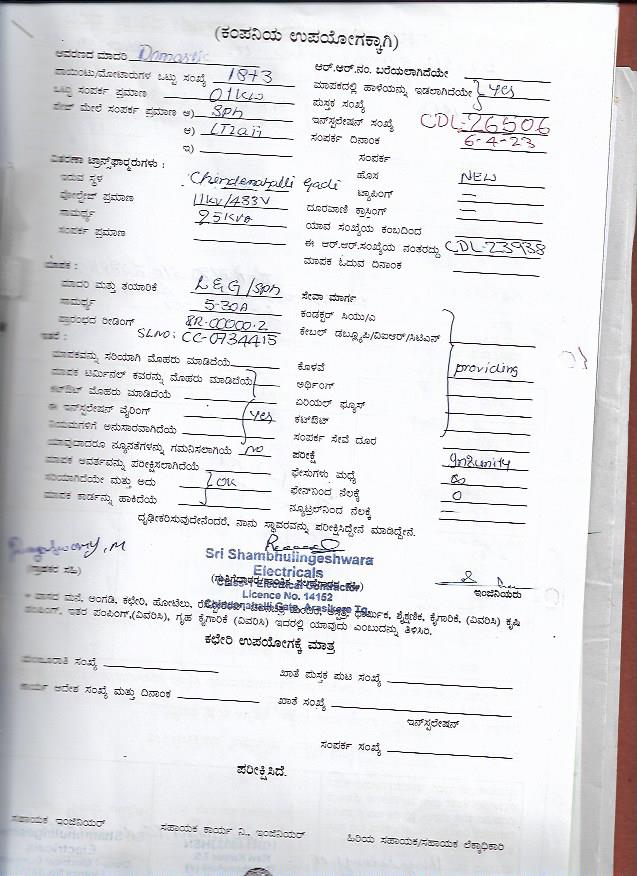 (ಕಂಪನಿಯ ಉಪಯೋಗಕ್ಕಾಗಿ)
ಆವರಣದ ಮಾದರಿ Domastic
ಪಾಯಿಂಟು/ಮೋಟಾರುಗಳ ಒಟ್ಟು ಸಂಖ್ಯೆ 18+3
ಒಟ್ಟು ಸಂಪರ್ಕ ಪ್ರಮಾಣ 01KW
ಪೇಜ್ ಮೇಲೆ ಸಂಪರ್ಕ ಪ್ರಮಾಣ ಅ) SPh
ಆ)
ಇ)
ಆರ್.ಆರ್.ನಂ. ಬರೆಯಲಾಗಿದೆಯೇ
ಮಾಪಕದಲ್ಲಿ ಹಾಳೆಯನ್ನು ಇಡಲಾಗಿದೆಯೇ Yes
ಪುಸ್ತಕ ಸಂಖ್ಯೆ
ಇನ್‌ಸ್ಟಲೇಷನ್ ಸಂಖ್ಯೆ CDL-26506
ಸಂಪರ್ಕ ದಿನಾಂಕ 6-4-23
ಸಂಪರ್ಕ
ವಿತರಣಾ ಟ್ರಾನ್ಸ್‌ಫಾರ್ಮರುಗಳು :
ಇರುವ ಸ್ಥಳ Chindenahalli Gadi
ವೋಲ್ಟೇಜ್ ಪ್ರಮಾಣ 11KV/433V
ಸಾಮರ್ಥ್ಯ 25KVA
ಸಂಪರ್ಕ ಪ್ರಮಾಣ
ಹೊಸ NEW
ಟ್ಯಾಪಿಂಗ್ —
ದೂರವಾಣಿ ಕ್ರಾಸಿಂಗ್ —
ಯಾವ ಸಂಖ್ಯೆಯ ಕಂಬದಿಂದ
ಈ ಆರ್.ಆರ್.ಸಂಖ್ಯೆಯ ನಂತರದ್ದು CDL-23938
ಮಾಪಕ ಓದುವ ದಿನಾಂಕ
ಮಾಪಕ :
ಮಾದರಿ ಮತ್ತು ತಯಾರಿಕೆ L&G/SPh
ಸಾಮರ್ಥ್ಯ 5-30A
ಪ್ರಾರಂಭದ ರೀಡಿಂಗ್ RR-00000.2
SLNO: CC-0734415
ಇತರೆ :
ಸೇವಾ ಮಾರ್ಗ :
ಕಂಡಕ್ಟರ್ ಸಿಯು/ಎ
ಕೇಬಲ್ ಡಬ್ಲ್ಯೂಪಿ/ವಿಐಆರ್/ಸಿಟಿಎಸ್
ಮಾಪಕವನ್ನು ಸರಿಯಾಗಿ ಮೊಹರು ಮಾಡಿದೆಯೆ
ಮಾಪಕ ಟರ್ಮಿನಲ್ ಕವರನ್ನು ಮೊಹರು ಮಾಡಿದೆಯೆ
ಕಟ್‌ಔಟ್ ಮೊಹರು ಮಾಡಿದೆಯೆ
ಈ ಇನ್‌ಸ್ಟಲೇಷನ್ ವೈರಿಂಗ್ Yes
ನಿಯಮಗಳಿಗೆ ಅನುಸಾರವಾಗಿದೆಯೆ
ಯಾವುದಾದರೂ ನ್ಯೂನತೆಗಳನ್ನು ಗಮನಿಸಲಾಗಿಯೆ NO
ಮಾಪಕ ಆವರ್ತವನ್ನು ಪರೀಕ್ಷಿಸಲಾಗಿದೆಯೆ
ಸರಿಯಾಗಿದೆಯೇ ಮತ್ತು ಅದು OK
ಮಾಪಕ ಕಾರ್ಡನ್ನು ಹಾಕಿದೆಯೆ
ಕೊಳವೆ providing
ಅರ್ಥಿಂಗ್
ಏರಿಯಲ್ ಫ್ಯೂಸ್
ಕಟ್‌ಔಟ್
ಸಂಪರ್ಕ ಸೇವೆ ದೂರ
ಪರೀಕ್ಷೆ
ಫೇಸುಗಳು ಮಧ್ಯೆ
ಫೇಸ್‌ನಿಂದ ನೆಲಕ್ಕೆ 0
ನ್ಯೂಟ್ರಲ್‌ನಿಂದ ನೆಲಕ್ಕೆ —
ದೃಢೀಕರಿಸುವುದೇನೆಂದರೆ, ನಾನು ಸ್ಥಾವರವನ್ನು ಪರೀಕ್ಷಿಸಿದ್ದೇನೆ ಮಾಡಿದ್ದೇನೆ.
Sri Shambhulingeshwara
Electricals
Licence No. 14152
Chindenahalli Gate, Arasikere Tq.
(ಗ್ರಾಹಕರ ಸಹಿ)
ಇಂಜಿನಿಯರು
ವಾಸದ ಮನೆ, ಅಂಗಡಿ, ಕಛೇರಿ, ಹೋಟೆಲು, ಧಾರ್ಮಿಕ, ಶೈಕ್ಷಣಿಕ, ಕೈಗಾರಿಕೆ, (ವಿವರಿಸಿ) ಕೃಷಿ
ಪಂಪಿಂಗ್, ಇತರ ಪಂಪಿಂಗ್,(ವಿವರಿಸಿ), ಗೃಹ ಕೈಗಾರಿಕೆ (ವಿವರಿಸಿ) ಇದರಲ್ಲಿ ಯಾವುದು ಎಂಬುದನ್ನು ತಿಳಿಸಿರಿ.
ಕಛೇರಿ ಉಪಯೋಗಕ್ಕೆ ಮಾತ್ರ
ಮಂಜೂರಾತಿ ಸಂಖ್ಯೆ
ಖಾತೆ ಪುಸ್ತಕ ಪುಟ ಸಂಖ್ಯೆ
ಕಾರ್ಯ ಆದೇಶ ಸಂಖ್ಯೆ ಮತ್ತು ದಿನಾಂಕ
ಖಾತೆ ಸಂಖ್ಯೆ
ಇನ್‌ಸ್ಟಲೇಷನ್
ಸಂಪರ್ಕ ಸಂಖ್ಯೆ
ಪರೀಕ್ಷಿಸಿದೆ.
ಸಹಾಯಕ ಇಂಜಿನಿಯರ್
ಸಹಾಯಕ ಕಾರ್ಯ ನಿ., ಇಂಜಿನಿಯರ್
ಹಿರಿಯ ಸಹಾಯಕ/ಸಹಾಯಕ ಲೆಕ್ಕಾಧಿಕಾರಿ